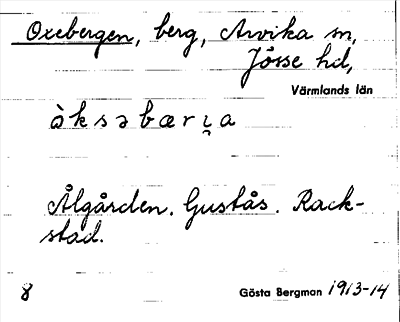 Oxebergen, berg, Arvika sn,
Jösse hd,
Värmlands län
àksəbærı̣a
Ålgården. Gustås. Rack-
stad.
8 Gösta Bergman 1913-14